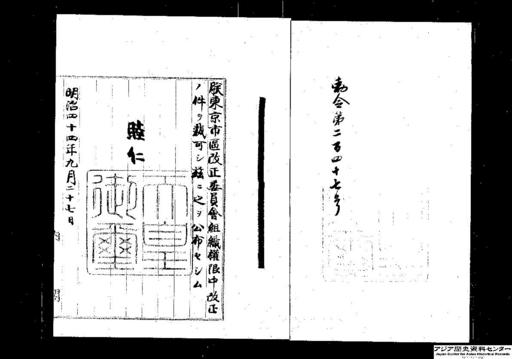 勅令第二百四十七号
朕東京市區改正委員會組織權限中改正
ノ件ヲ裁可シ茲ニ之ヲ公布セシム
睦仁
天皇御璽
明治四十四年九月二十七日
アジア歴史資料センター
Japan Center for Asian Historical Records